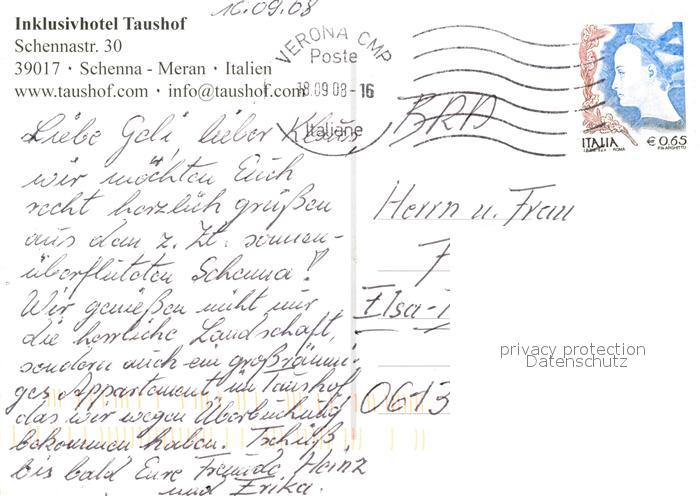 16.09.08
Inklusivhotel Taushof
Schennastr. 30
39017 · Schenna - Meran · Italien
www.taushof.com · info@taushof.com
VERONA CMP
Poste
18.09.08-16
Italiane
ITALIA
€ 0.65
Liebe Geli, lieber Klaus,
wir möchten Euch
recht herzlich grüßen
aus dem z. Zt. sonnen-
überfluteten Schenna!
Wir genießen nicht nur
die herrliche Landschaft,
sondern auch ein großräumi-
ges Appartement im Taushof
das wir wegen Überbuchung
bekommen haben. Tschüß
bis bald Eure Freunde Heinz
und Erika.
BRD
Herrn u. Frau
Elsa-
0613
privacy protection
Datenschutz